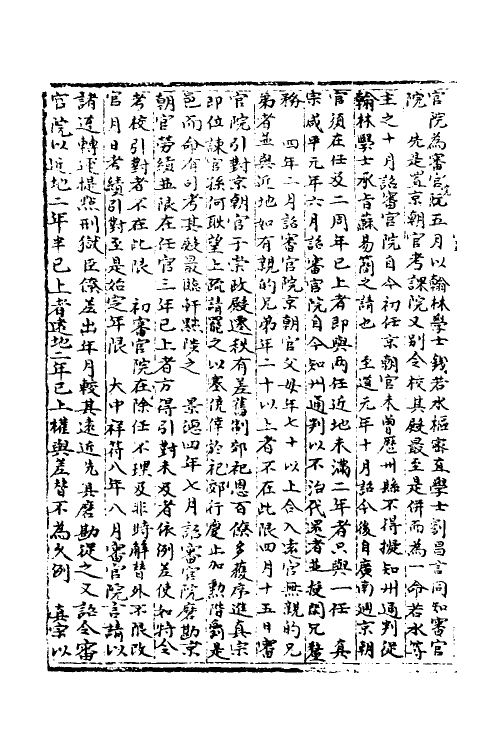 官院為審官院五月以翰林學士錢若水樞密直學士劉昌言同知審官
院　先是置京朝官考課院又別令校其殿最至是併而為一命若水等
主之十月詔審官院自今初任京朝官未曾歷州縣不得擬知州通判從
翰林學士承旨蘇易簡之請也　至道元年十月詔今後自廣南迴京朝
官須在任及二周年已上者即與兩任近地未滿二年者只與一任　真
宗咸平元年六月詔審官院自今知州通判以不治代還者並擬閑冗釐
務　四年二月詔審官院京朝官父母年七十以上合入遠官無親的兄
弟者並與近地如有親的兄弟年二十以上者不在此限四月十五日審
官院引對京朝官于崇政殿遷秩有差舊制郊祀恩百僚多獲序進真宗
即位諫官孫何耿望上疏請罷之以塞僥倖於祀郊行慶止加勳階爵邑
而命有司考其殿最臨軒黜陟之　景德四年七月詔審官院磨勘京
朝官勞績並限在任官三年已上者方得引對未及者依例差使如特令
考校引對者不在此限　初審官院在除任不理及非時解替外不限改
官月日考績引對至是始定年限　大中祥符八年八月審官院言請以
諸道轉運提點刑獄臣僚差出年月較其遠近先具磨勘從之又詔令審
官院以近地二年半已上者遠地二年已上權與差替不為久例　真宗以